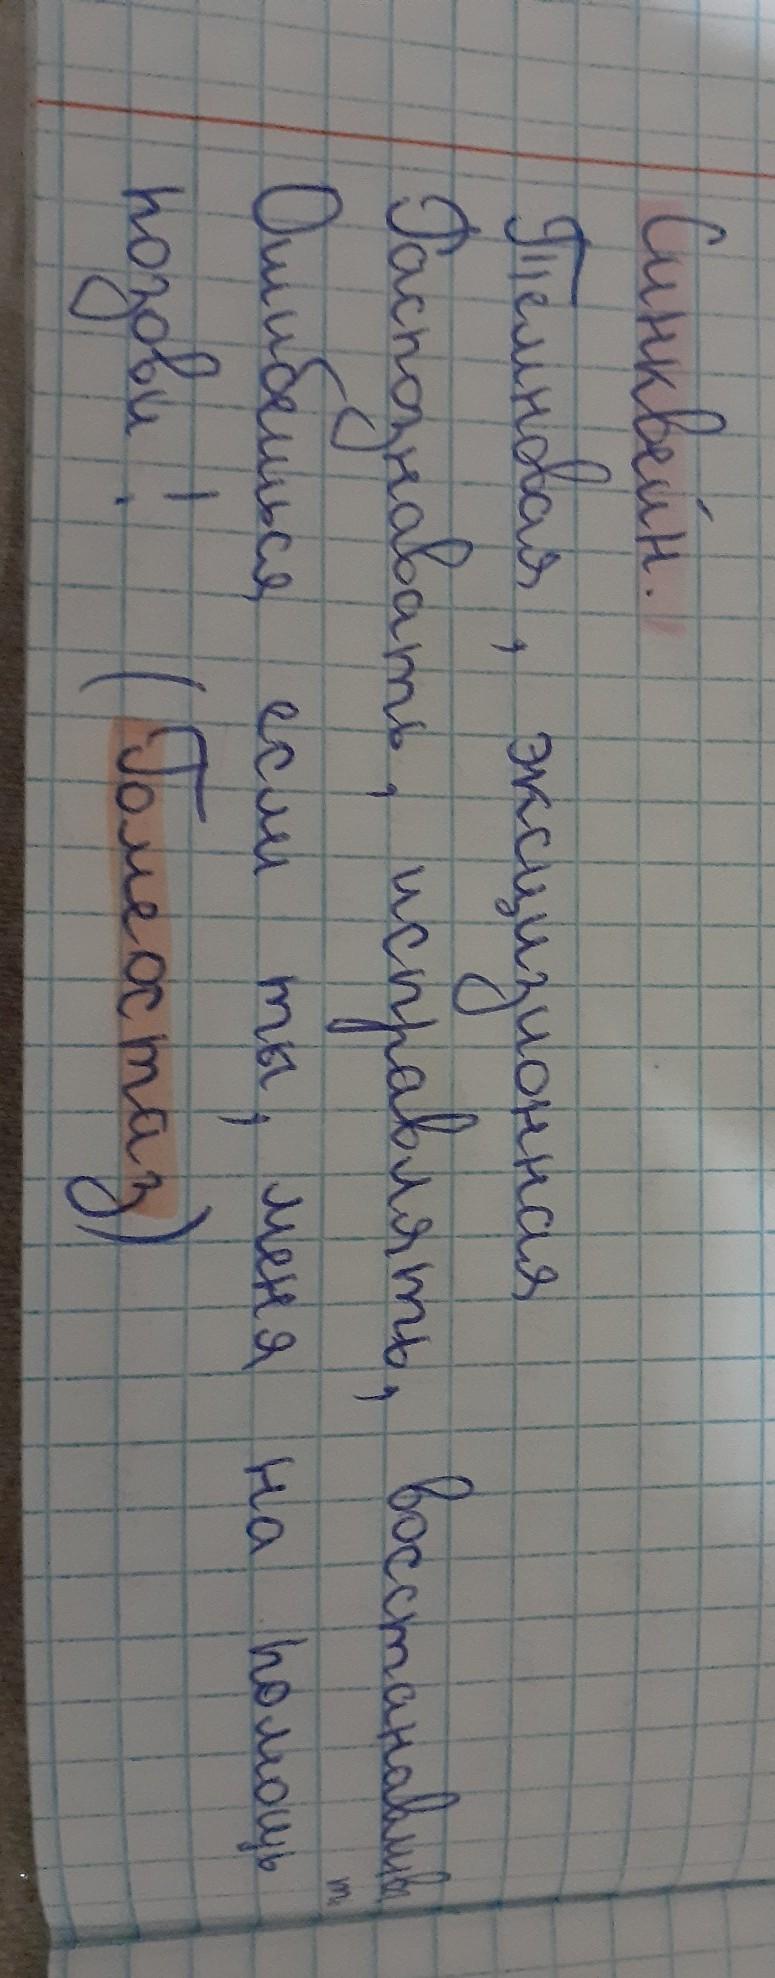 Синквейн.
Темновая, эксцизионная
Распознавать, исправлять, восстанавливать
Ошибешься, если ты, меня на помощь
позови! (Гомеостаз)